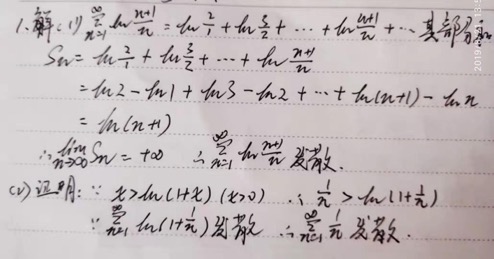 1.解(1) ∑_{n=1}^{∞} ln (n+1)/n = ln 2/1 + ln 3/2 + ⋯ + ln (n+1)/n + ⋯ 其部分和
Sn = ln 2/1 + ln 3/2 + ⋯ + ln (n+1)/n
= ln2 - ln1 + ln3 - ln2 + ⋯ + ln(n+1) - ln n
= ln(n+1)
∴ lim_{n→∞} Sn = +∞ ∴ ∑_{n=1}^{∞} ln (n+1)/n 发散.
(2) 证明: ∵ x > ln(1+x) (x>0) ∴ 1/n > ln(1+1/n)
∵ ∑_{n=1}^{∞} ln(1+1/n) 发散 ∴ ∑_{n=1}^{∞} 1/n 发散.